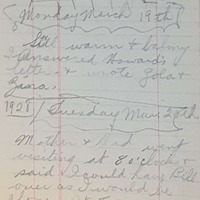 Monday March 19th
Still warm & balmy
I answered Howard's
letter & wrote Zola &
Zana.
1928 Tuesday Mar 20th
Mother & Dad went
visiting at 8 o'clock &
said I could have Bill
over as I would be